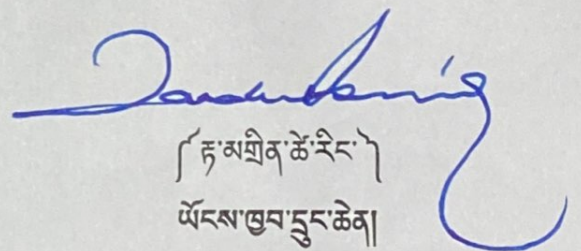 ༼རྟ་མགྲིན་ཚེ་རིང་༽
ཡོངས་ཁྱབ་དྲུང་ཆེན།